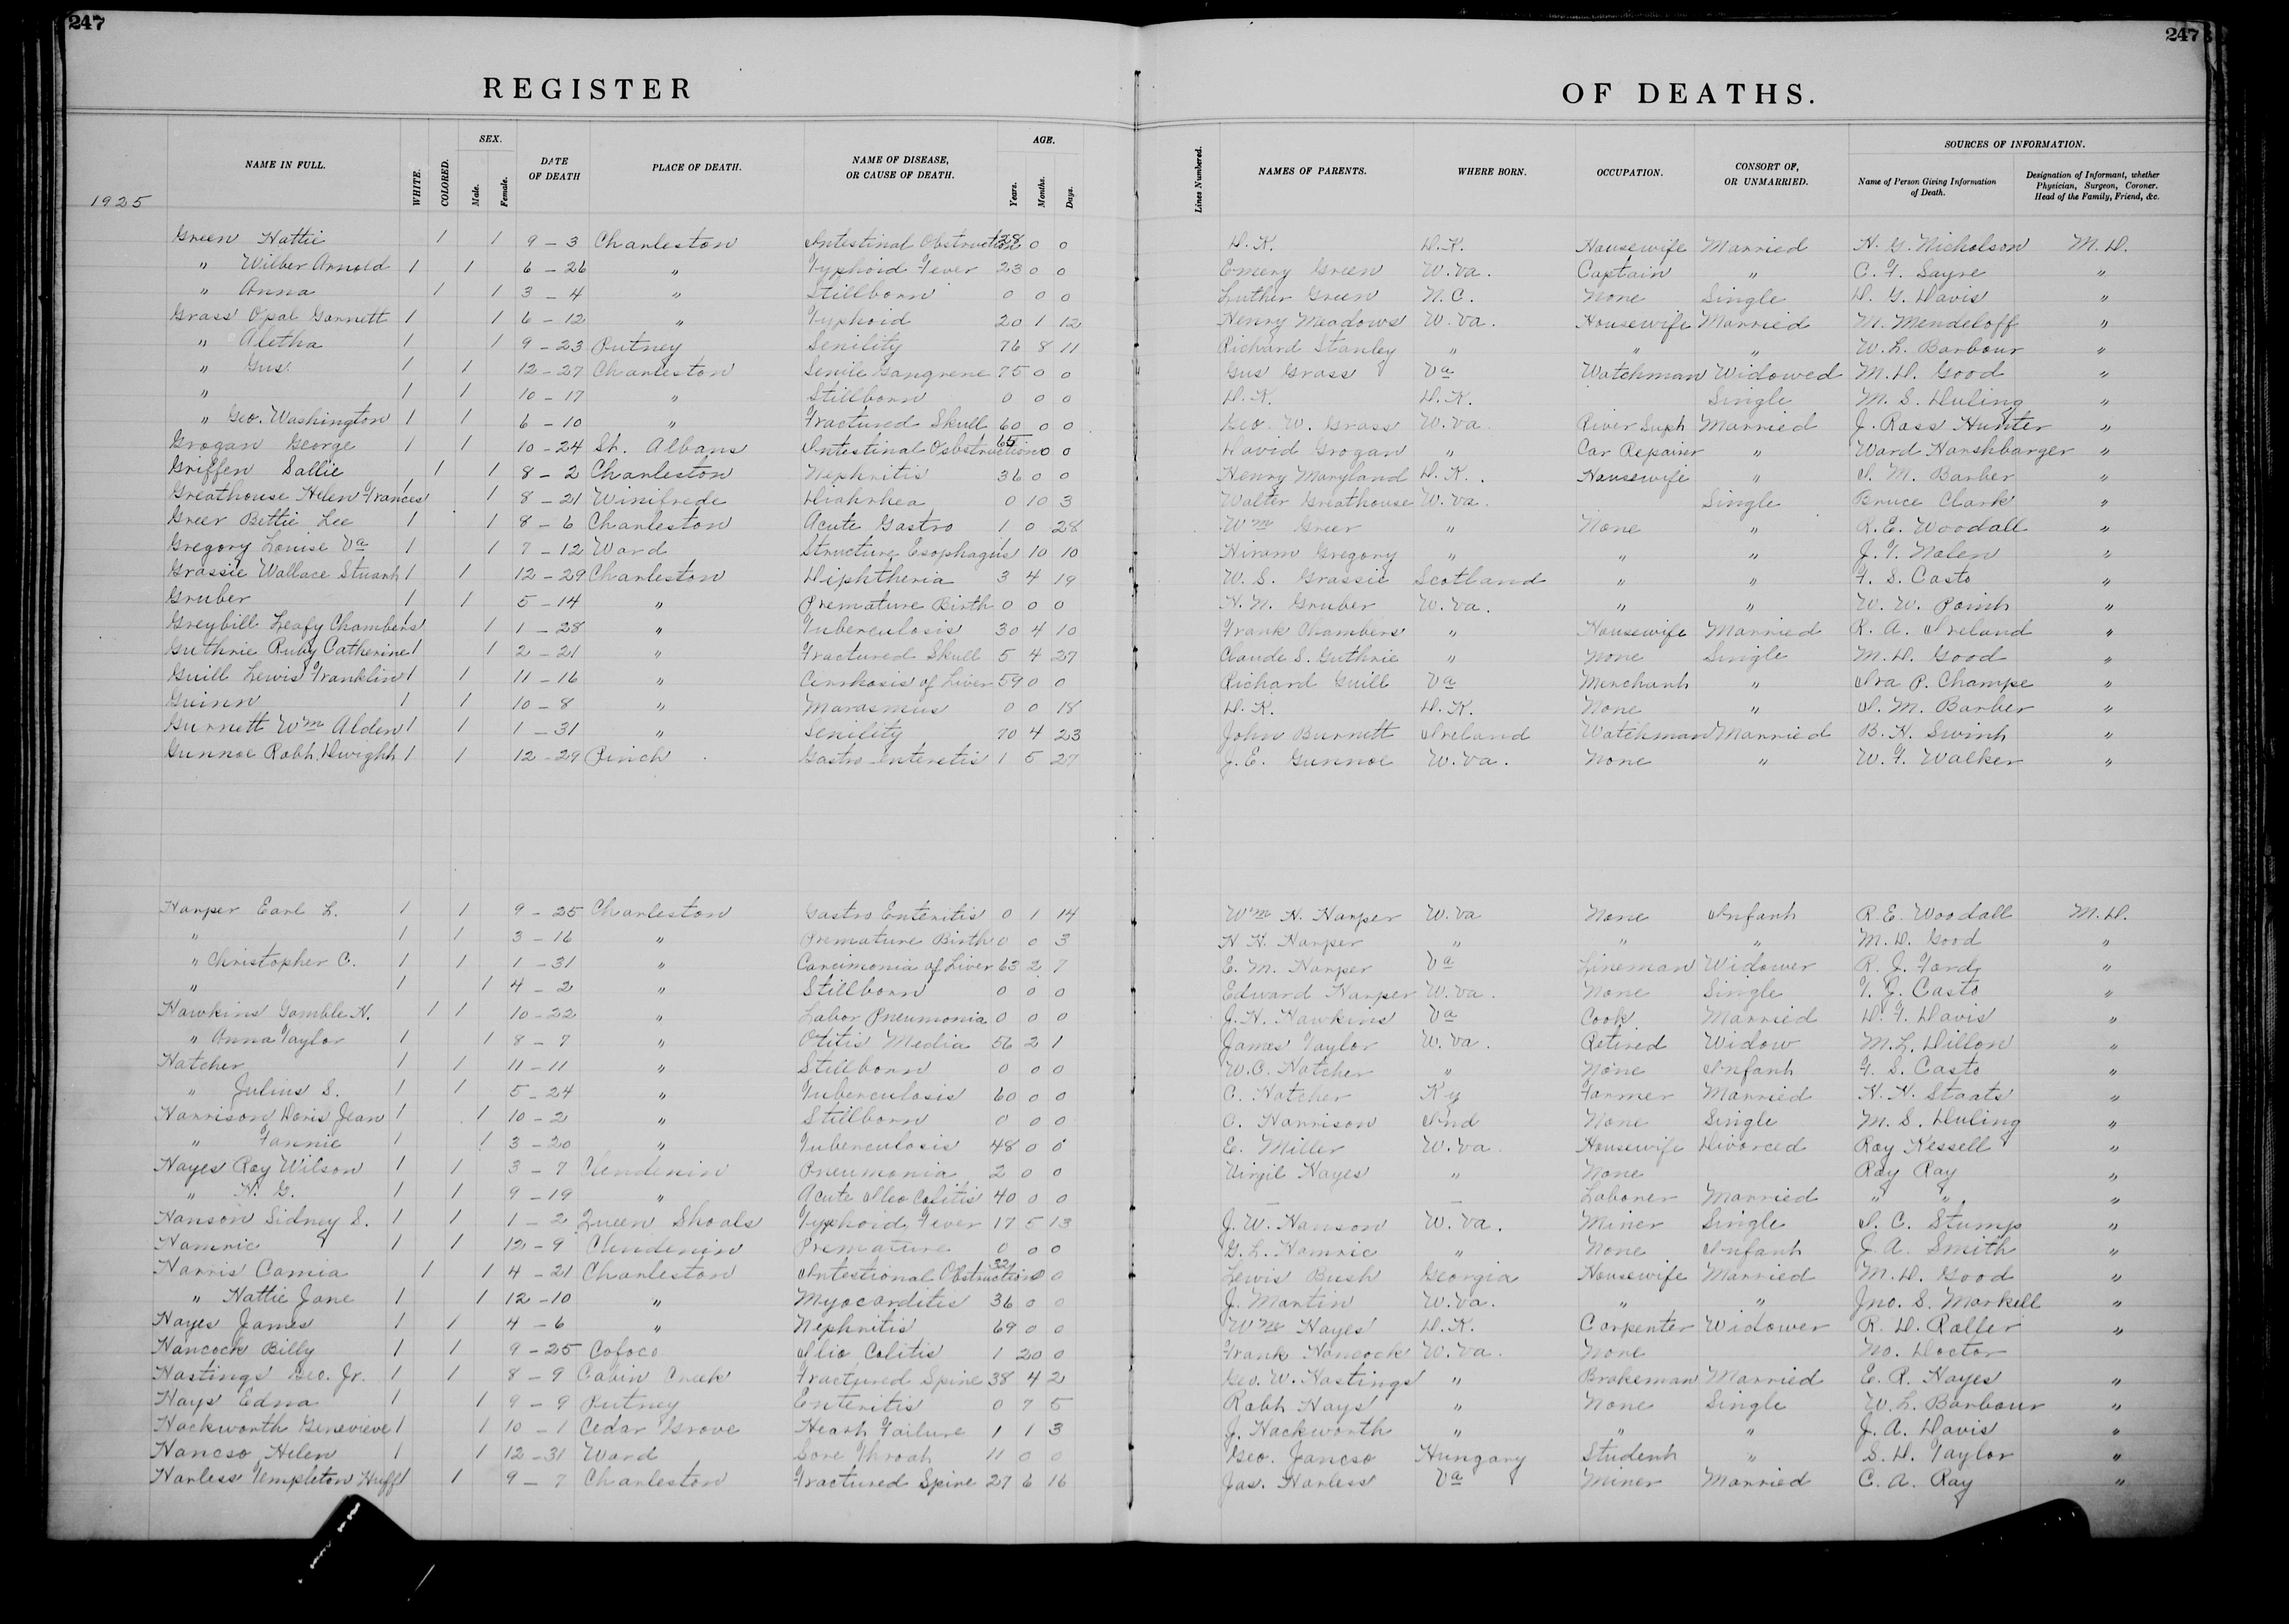 247 247
REGISTER OF DEATHS.
SEX. AGE. SOURCES OF INFORMATION.
NAME IN FULL. WHITE. COLORED. Male. Female. DATE OF DEATH PLACE OF DEATH. NAME OF DISEASE, OR CAUSE OF DEATH. Years. Months. Days. Lines Numbered. NAMES OF PARENTS. WHERE BORN. OCCUPATION. CONSORT OF, OR UNMARRIED. Name of Person Giving Information of Death. Designation of Informant, whether Physician, Surgeon, Coroner. Head of the Family, Friend, &c.
1925
Green Hattie 1 1 9 - 3 Charleston Intestinal Obstruction 28 0 0 D. K. D. K. Housewife Married H. G. Nicholson M. D.
" Wilber Arnold 1 1 6 - 26 " Typhoid Fever 23 0 0 Emery Green W. Va. Captain " C. F. Sayre "
" Anna 1 1 3 - 4 " Stillborn 0 0 0 Luther Green N. C. None Single D. G. Davis "
Grass Opal Garnett 1 1 6 - 12 " Typhoid 20 1 12 Henry Meadows W. Va. Housewife Married M. Mendeloff "
" Aletha 1 1 9 - 23 Putney Senility 76 8 11 Richard Stanley " " " W. L. Barbour "
" Gus 1 1 12 - 27 Charleston Senile Gangrene 75 0 0 Gus Grass Va Watchman Widowed M. D. Good "
" 1 1 10 - 17 " Stillborn 0 0 0 D. K. D. K. Single M. S. Duling "
" Geo. Washington 1 1 6 - 10 " Fractured Skull 60 0 0 Geo. W. Grass W. Va. River Supt Married J. Ross Hunter "
Grogan George 1 1 10 - 24 St. Albans Intestinal Osbstruction 65 0 0 David Grogan " Car Repairer " Ward Harshbarger "
Griffen Sallie 1 1 8 - 2 Charleston Nephritis 36 0 0 Henry Maryland D. K. Housewife " I. M. Barber "
Greathouse Helen Frances 1 1 8 - 21 Winifrede Diahrhea 0 10 3 Walter Greathouse W. Va. Single Bruce Clark "
Greer Bettie Lee 1 1 8 - 6 Charleston Acute Gastro 1 0 28 Wm Greer " None " R. E. Woodall "
Gregory Louise Va 1 1 7 - 12 Ward Structure Esophagus 1 10 10 Hiram Gregory " " " J. F. Nalen "
Grassie Wallace Stuart 1 1 12 - 29 Charleston Diphtheria 3 4 19 W. S. Grassie Scotland " " F. S. Casto "
Gruber 1 1 5 - 14 " Premature Birth 0 0 0 H. N. Gruber W. Va. " " W. W. Point "
Greybill Leafy Chambers 1 1 1 - 28 " Tuberculosis 30 4 10 Frank Chambers " Housewife Married R. A. Ireland "
Guthrie Ruby Catherine 1 1 2 - 21 " Fractured Skull 5 4 27 Claude S. Guthrie " None Single M. D. Good "
Guill Lewis Franklin 1 1 11 - 16 " Cirrhosis of Liver 59 0 0 Richard Guill Va Merchant " Ira P. Champe "
Guinn 1 1 10 - 8 " Marasmus 0 0 18 D. K. D. K. None " I. M. Barber "
Gurnett Wm Alden 1 1 1 - 31 " Senility 70 4 23 John Burnett Ireland Watchman Married B. H. Swint "
Gunnoe Robt. Dwight 1 1 12 - 29 Pinch Gastro-Interetis 1 5 27 J. E. Gunnoe W. Va. None " W. F. Walker "
Harper Earl L. 1 1 9 - 25 Charleston Gastro Enteritis 0 1 14 Wm H. Harper W. Va None Infant R. E. Woodall M. D.
" 1 1 3 - 16 " Premature Birth 0 0 3 H. H. Harper " " " M. D. Good "
" Christopher C. 1 1 1 - 31 " Carcimonia of Liver 63 2 7 E. M. Harper Va Lineman Widower R. J. Ford "
" 1 1 4 - 2 " Stillborn 0 0 0 Edward Harper W. Va. None Single F. J. Casto "
Hawkins Gamble H. 1 1 10 - 22 " Labor Pneumonia 0 0 0 J. H. Hawkins Va Cook Married D. F. Davis "
" Anna Taylor 1 1 8 - 7 " Otitis Media 56 2 1 James Taylor W. Va. Retired Widow M. L. Dillon "
Hatcher 1 1 11 - 11 " Stillborn 0 0 0 W. C. Hatcher " None Infant F. S. Casto "
" Julius S. 1 1 5 - 24 " Tuberculosis 60 0 0 C. Hatcher Ky Farmer Married H. H. Staats "
Harrison Doris Jean 1 1 10 - 2 " Stillborn 0 0 0 C. Harrison Ind None Single M. S. Duling "
" Fannie 1 1 3 - 20 " Tuberculosis 48 0 0 E. Miller W. Va. Housewife Divorced Roy Kessell "
Hayes Roy Wilson 1 1 3 - 7 Clendenin Pneumonia 2 0 0 Virgil Hayes " None Roy Ray "
" H. G. 1 1 9 - 19 " Acute Ileo Colitis 40 0 0 — — Laborer Married " " "
Hanson Sidney S. 1 1 1 - 2 Queen Shoals Typhoid Fever 17 5 13 J. W. Hanson W. Va. Miner Single I. C. Stump "
Hamric 1 1 12 - 9 Clendenin Premature 0 0 0 G. L. Hamric " None Infant J. A. Smith "
Harris Camia 1 1 4 - 21 Charleston Intestional Obstruction 32 0 0 Lewis Bush Georgia Housewife Married M. D. Good "
" Hattie Jane 1 1 12 - 10 " Myocarditis 36 0 0 J. Martin W. Va. " " Jno. S. Markell "
Hayes James 1 1 4 - 6 " Nephritis 69 0 0 Wm Hayes D. K. Carpenter Widower R. D. Roller "
Hancock Billy 1 1 9 - 25 Cofoco Ilio Colitis 1 20 0 Frank Hancock W. Va. None No. Doctor
Hastings Geo. Jr. 1 1 8 - 9 Cabin Creek Fractured Spine 38 4 2 Geo. W. Hastings " Brakeman Married E. R. Hayes "
Hays Edna 1 1 9 - 9 Putney Enteritis 0 7 5 Robt Hays " None Single W. L. Barbour "
Hackworth Genevieve 1 1 10 - 1 Cedar Grove Heart Failure 1 1 3 J. Hackworth " " " J. A. Davis "
Hancso Helen 1 1 12 - 31 Ward Sore Throat 11 0 0 Geo. Jancso Hungary Student " S. D. Taylor "
Harless Templeton Huff 1 1 9 - 7 Charleston Fractured Spine 27 6 16 Jas. Harless Va Miner Married C. A. Ray "